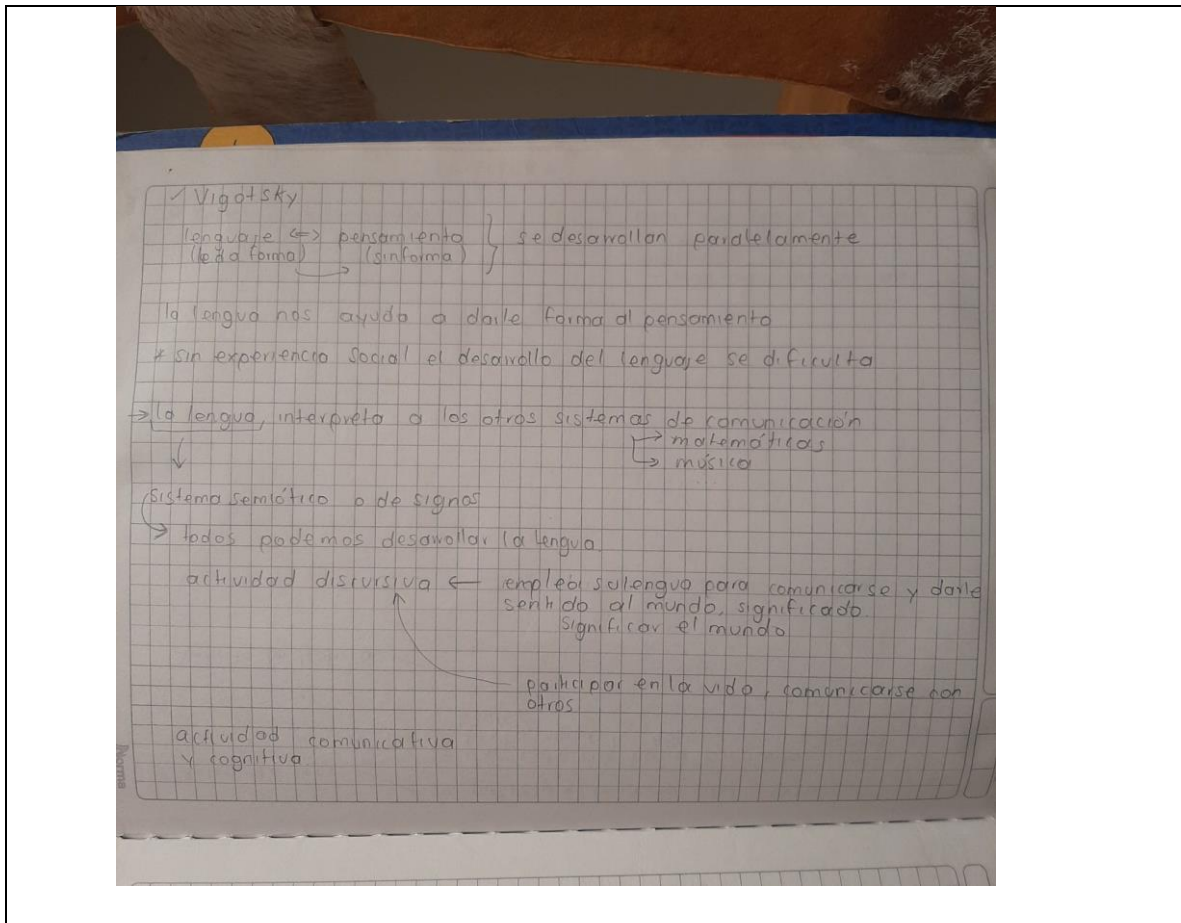 ✓ Vigotsky
lenguaje <-> pensamiento } se desarrollan paralelamente
(le da forma) (sin forma)
la lengua nos ayuda a darle forma al pensamiento
* sin experiencia social el desarrollo del lenguaje se dificulta
→ la lengua, interpreta a los otros sistemas de comunicación
→ matemáticas
→ música
sistema semiótico o de signos
→ todos podemos desarrollar la lengua
actividad discursiva ← emplea su lengua para comunicarse y darle
sentido al mundo, significado.
significar el mundo
participar en la vida, comunicarse con
otros
actividad comunicativa
y cognitiva
Norma